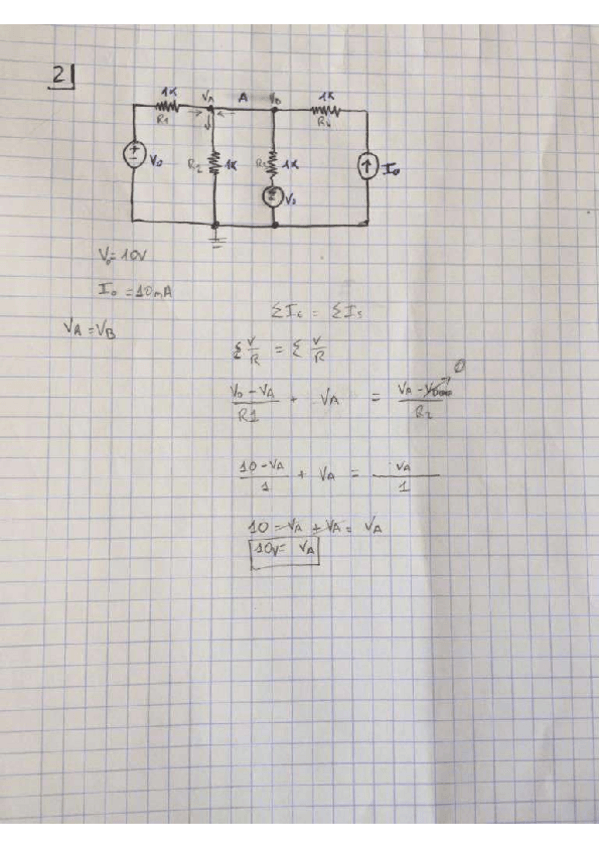 2|
1K VA A VB 1K
R1 R4
V0 R2 1K R3 1K I0
V0
V0 = 10V
I0 = 10mA
VA = VB
ΣIe = ΣIs
Σ V/R = Σ V/R
(V0 - VA)/R1 + VA = (VA - 0)/R2
(10 - VA)/1 + VA = VA/1
10 - VA + VA = VA
10V = VA